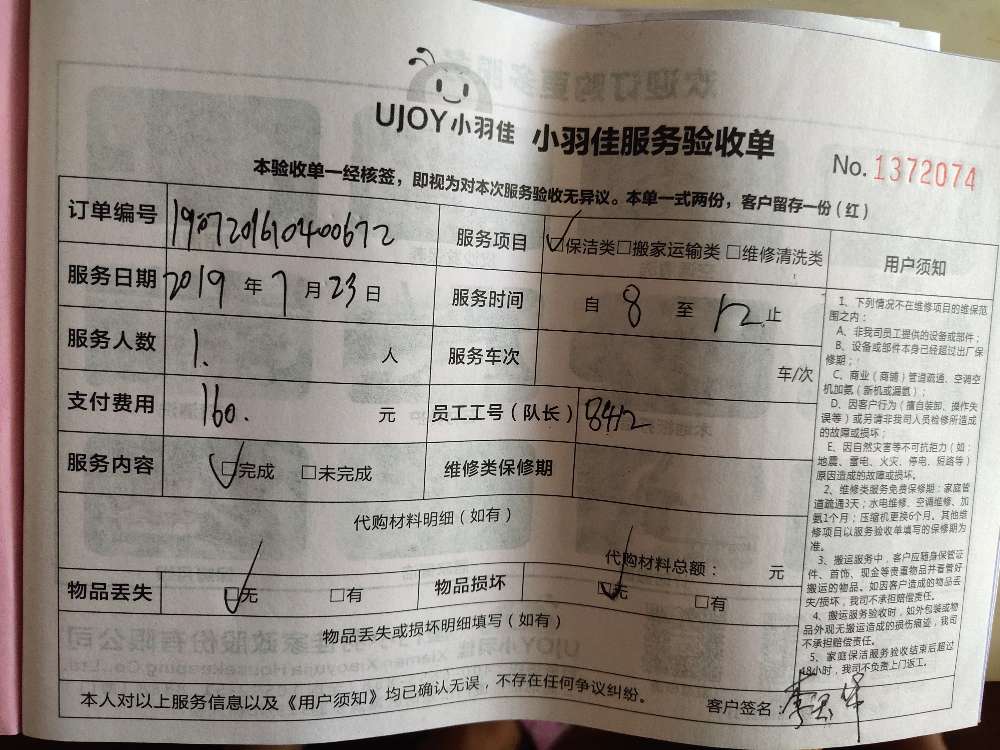 UJOY小羽佳 小羽佳服务验收单
No. 1372074
本验收单一经核签，即视为对本次服务验收无异议。本单一式两份，客户留存一份（红）
订单编号 19072016104000672 服务项目 ☑保洁类□搬家运输类□维修清洗类
服务日期 2019年7月23日 服务时间 自 8 至 12 止
服务人数 1. 人 服务车次 车/次
支付费用 160. 元 员工工号（队长） 8412
服务内容 ☑完成 □未完成 维修类保修期
代购材料明细（如有）
代购材料总额： 元
物品丢失 ☑无 □有 物品损坏 ☑无 □有
物品丢失或损坏明细填写（如有）
本人对以上服务信息以及《用户须知》均已确认无误，不存在任何争议纠纷。 客户签名：
用户须知
1、下列情况不在维修项目的维保范
围之内：
A、非我司员工提供的设备或部件；
B、设备或部件本身已经超过出厂保
修期；
C、商业（商铺）管道疏通、空调空
机加氨（新机或漏氨）；
D、因客户行为（擅自装卸、操作失
误等）或另请非我司人员检修所造成
的故障或损坏；
E、因自然灾害等不可抗拒力（如：
地震、雷电、火灾、停电、短路等）
原因造成的故障或损坏。
2、维修类服务免费保修期：家庭管
道疏通3天；水电维修、空调维修、加
氨1个月；压缩机更换6个月。其他维
修项目以服务验收单填写的保修期为
准。
3、搬运服务中，客户应随身保管证
件、首饰、现金等贵重物品并看管好
搬运的物品。如因客户造成的物品丢
失/损坏，我司不承担赔偿责任。
4、搬运服务验收时，如外包装或物
品外观无搬运造成的损伤痕迹，我司
不承担赔偿责任。
5、家庭保洁服务验收结束后超过
48小时，我司不负责上门返工。